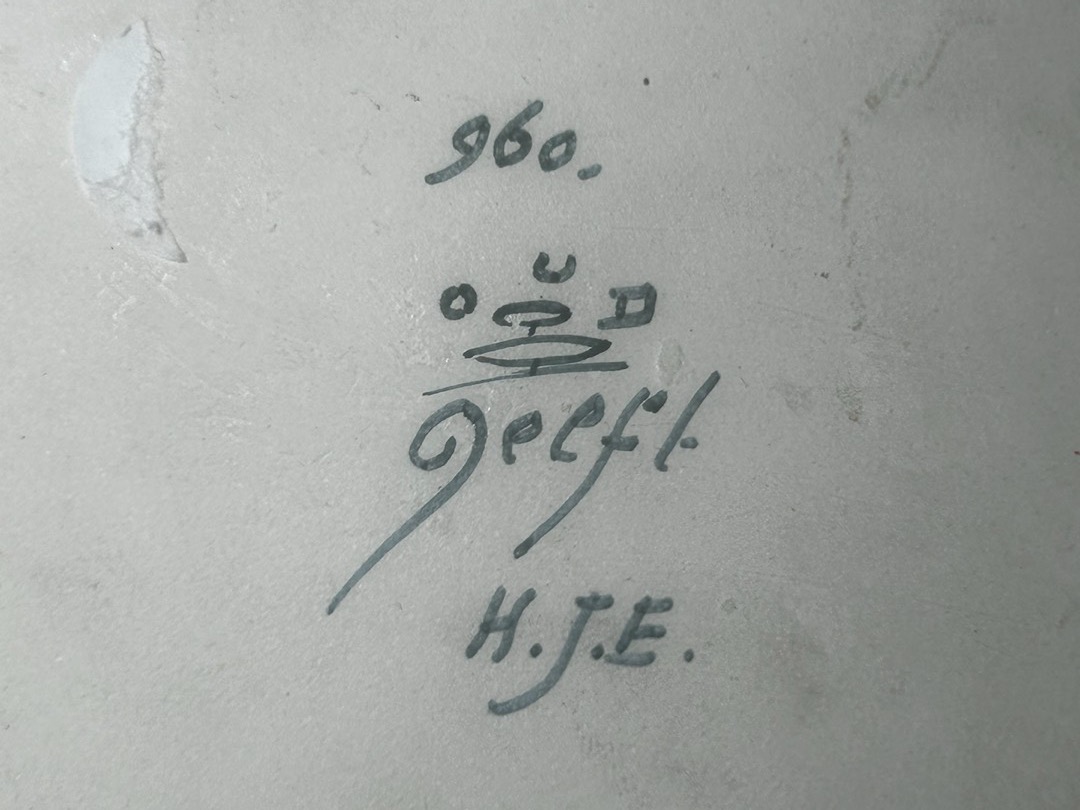 960.
O U D
Delft
H.J.E.